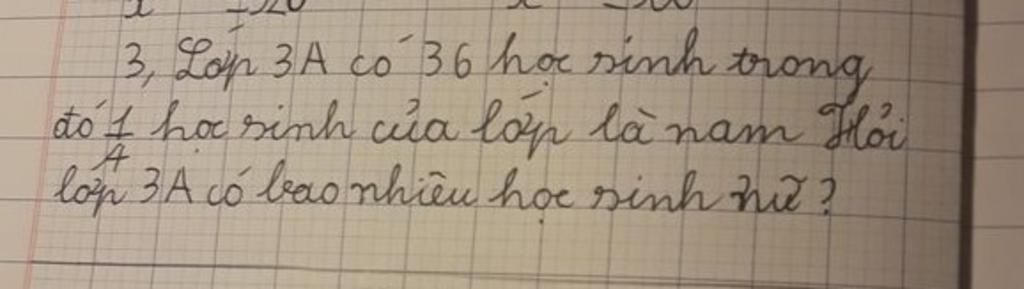 3, Lớp 3A có 36 học sinh trong
đó 1/4 học sinh của lớp là nam Hỏi
lớp 3A có bao nhiêu học sinh nữ?